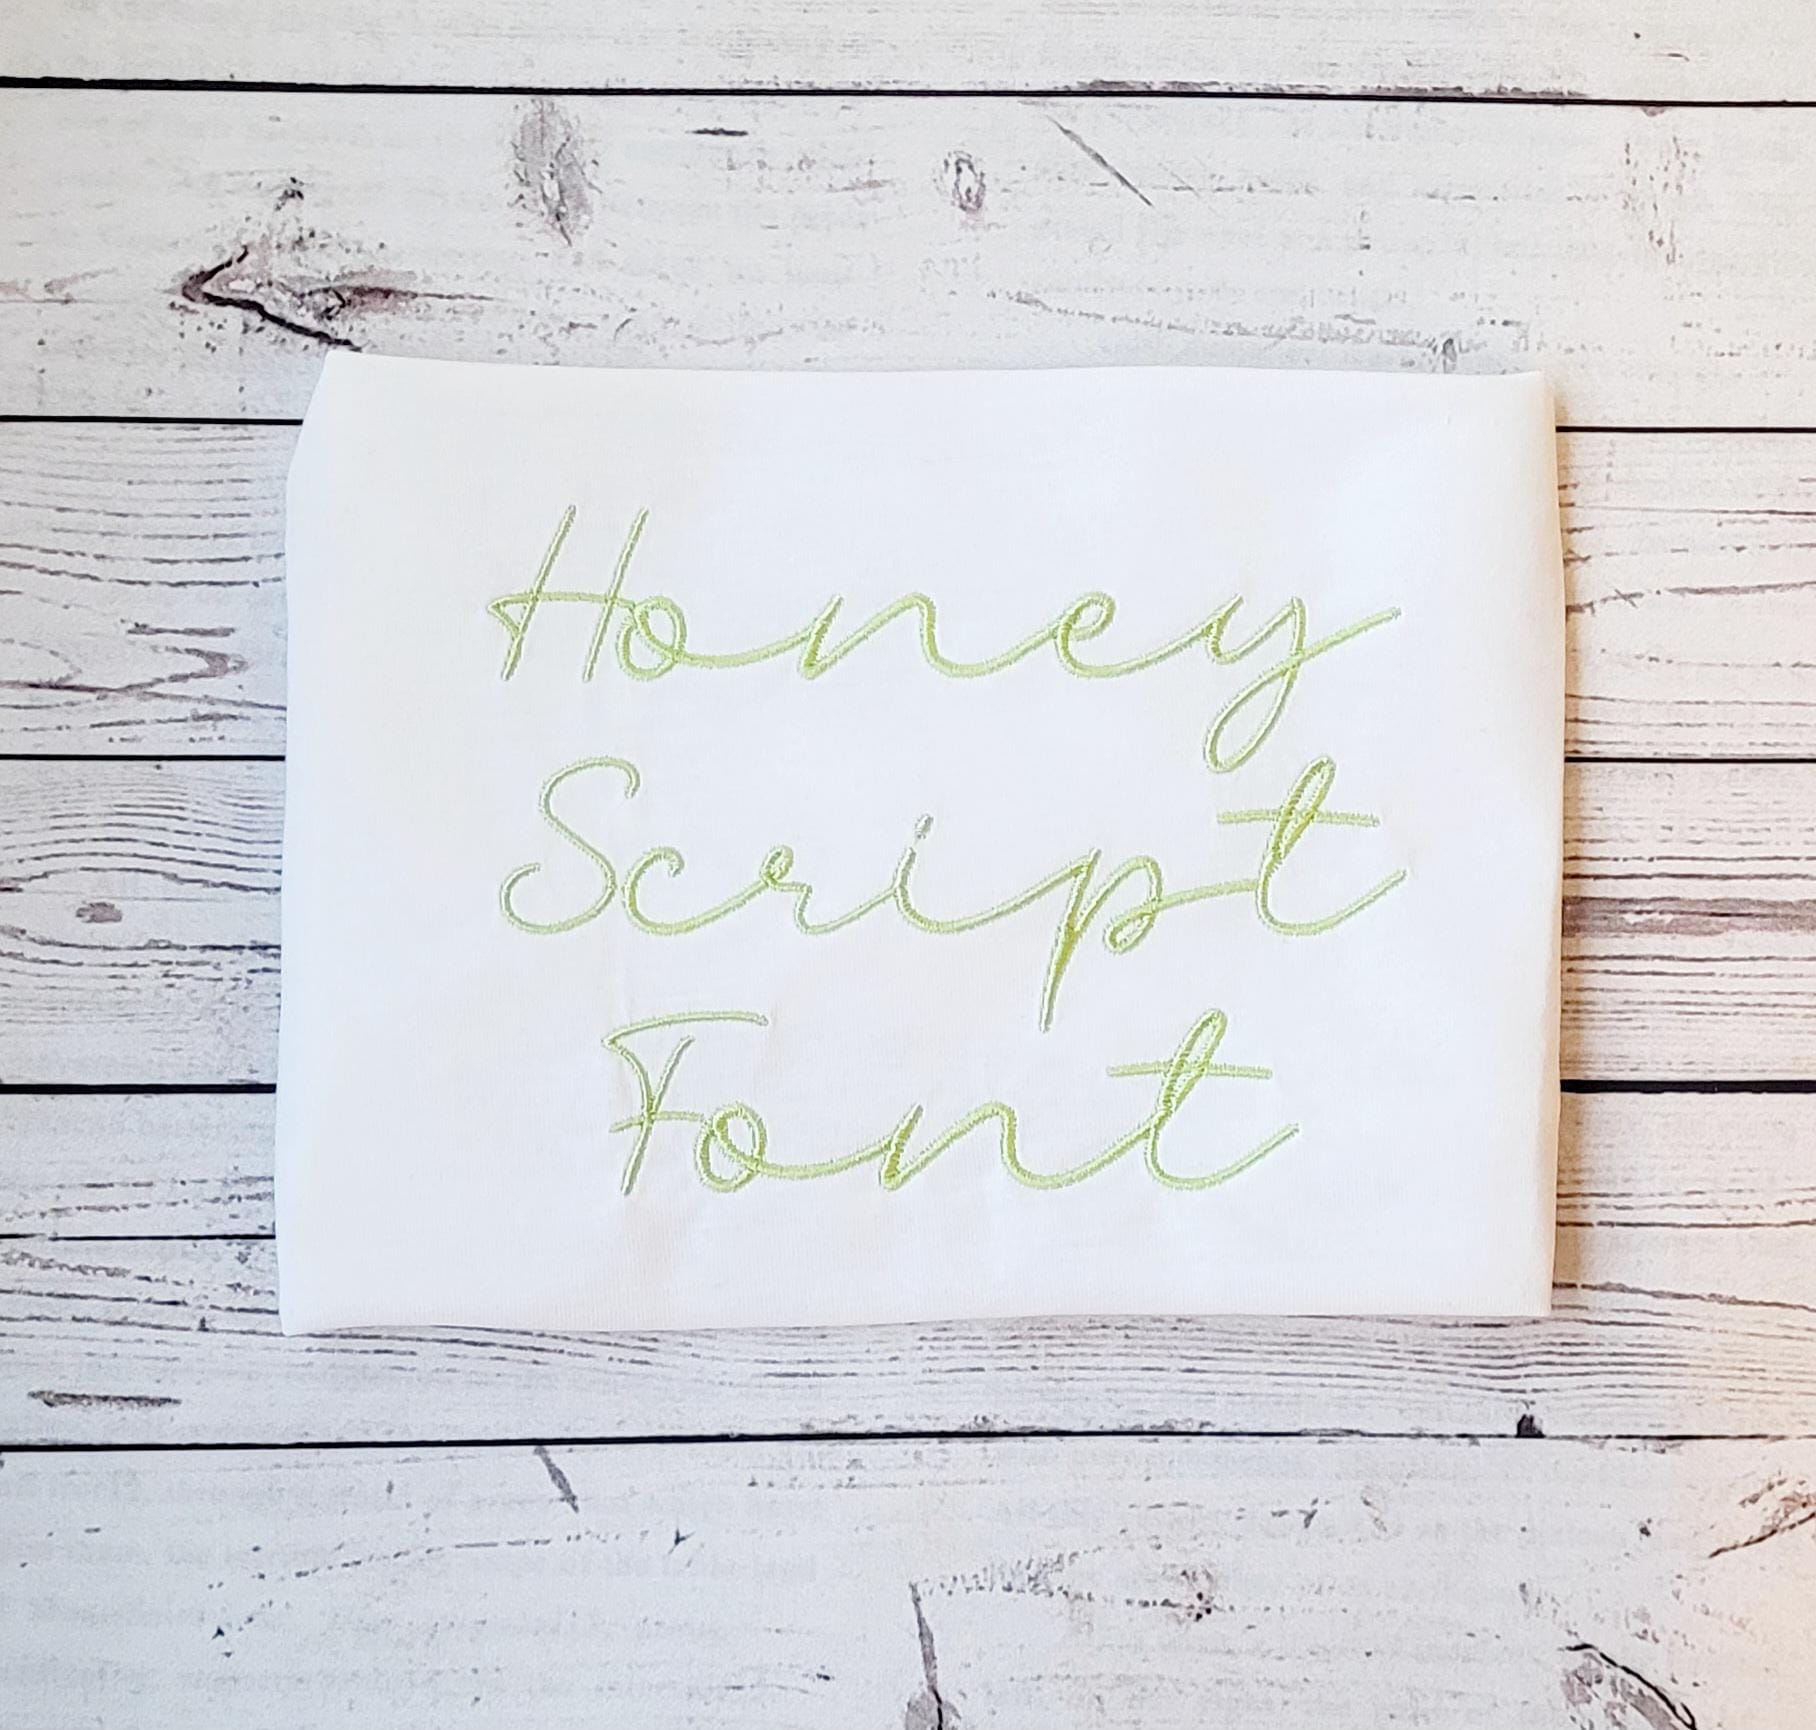 Honey
Script
Font